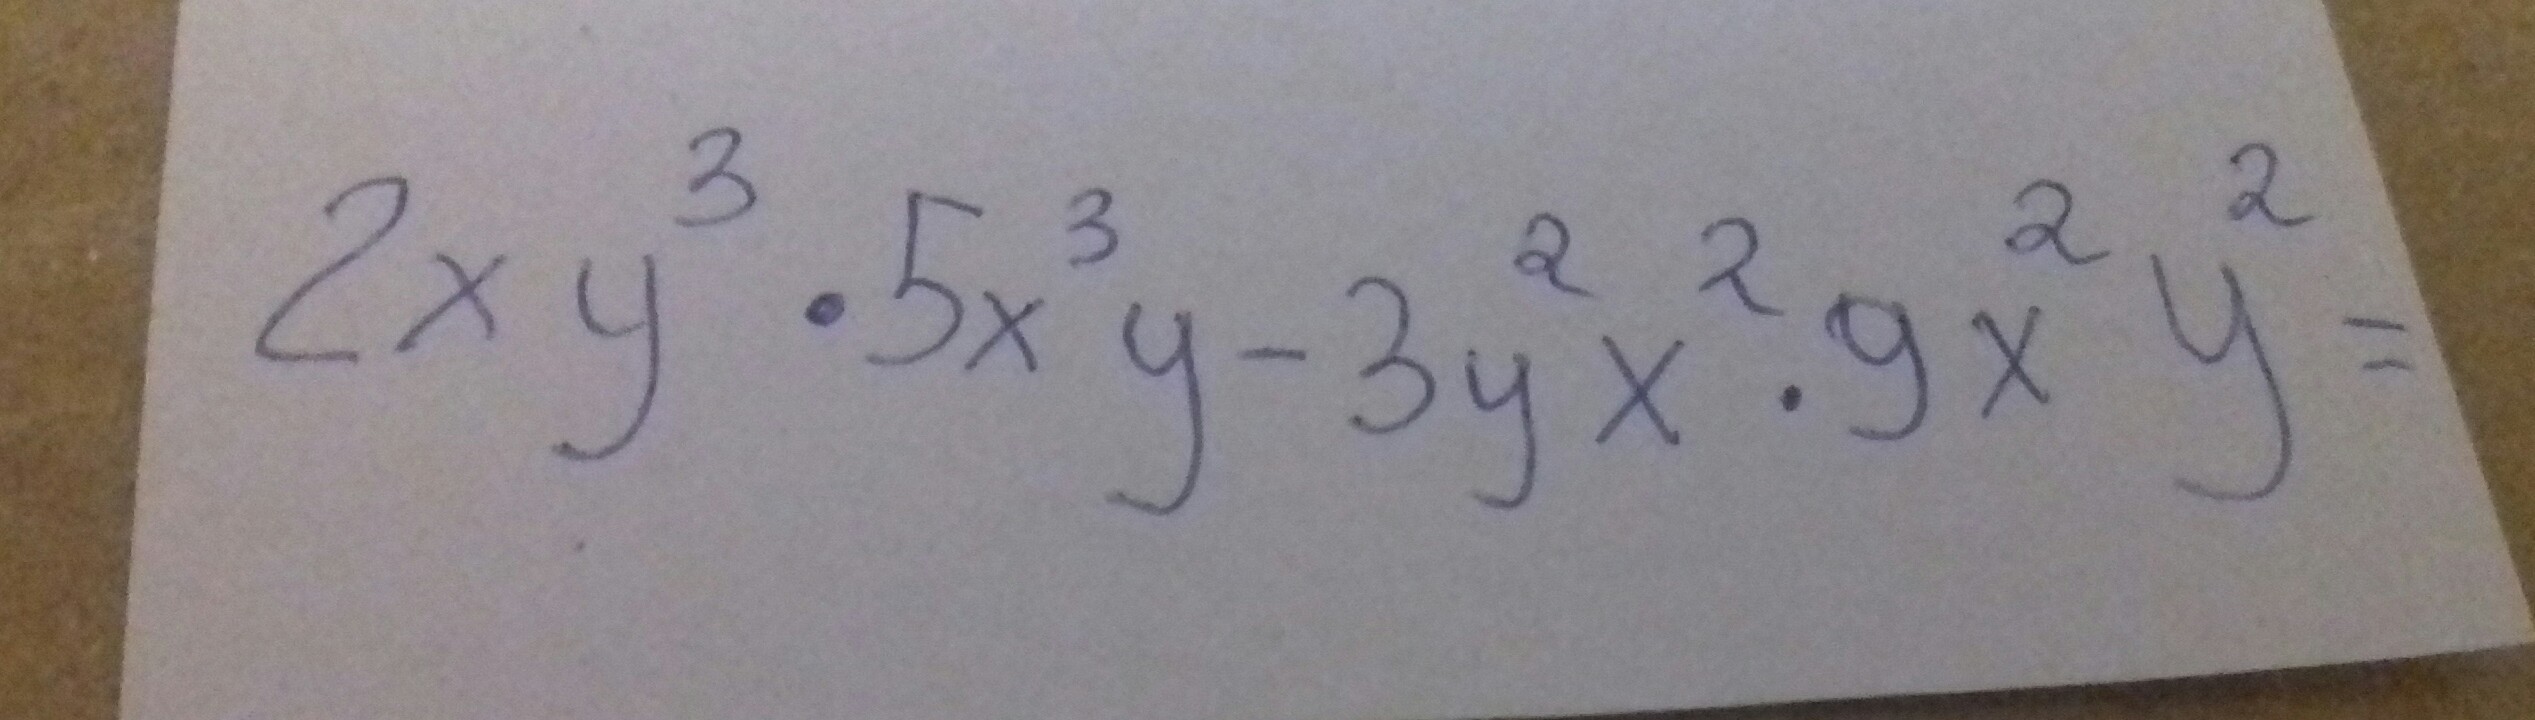 2xy³·5x³y-3y²x²·9x²y²=